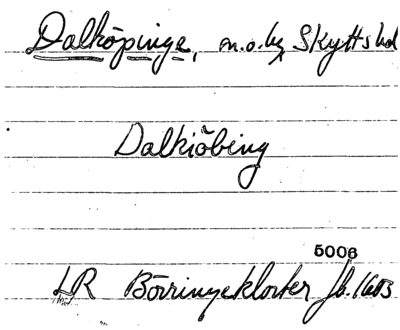 Dalköpinge, s.o. by Skytts hd
Dalkiöbing
5006
LR Börringekloster Jb. 1603